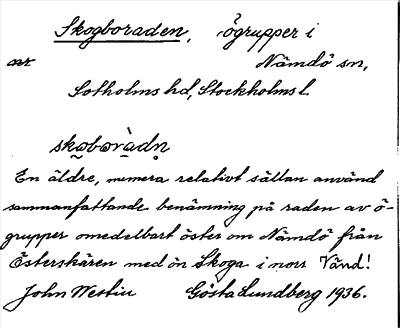 Skogboraden, ögrupper i
nr Nämdö sn,
Sotholms hd, Stockholms l.
skoboràdn
En äldre, numera relativt sällan använd
sammanfattande benämning på raden av ö-
grupper omedelbart öster om Nämdö från
Österskären med ön Skoga i norr Vänd!
John Westin Gösta Lundberg 1936.